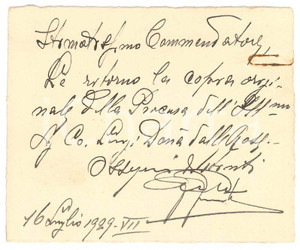 Stimatissmo Commendatore,
Le ritorno la copia origi-
nale della Procura dell'Ill.mo
Sig. Co. Luigi Donà dalle Rose.
Ossequi devoti
16 Luglio 1929-VII